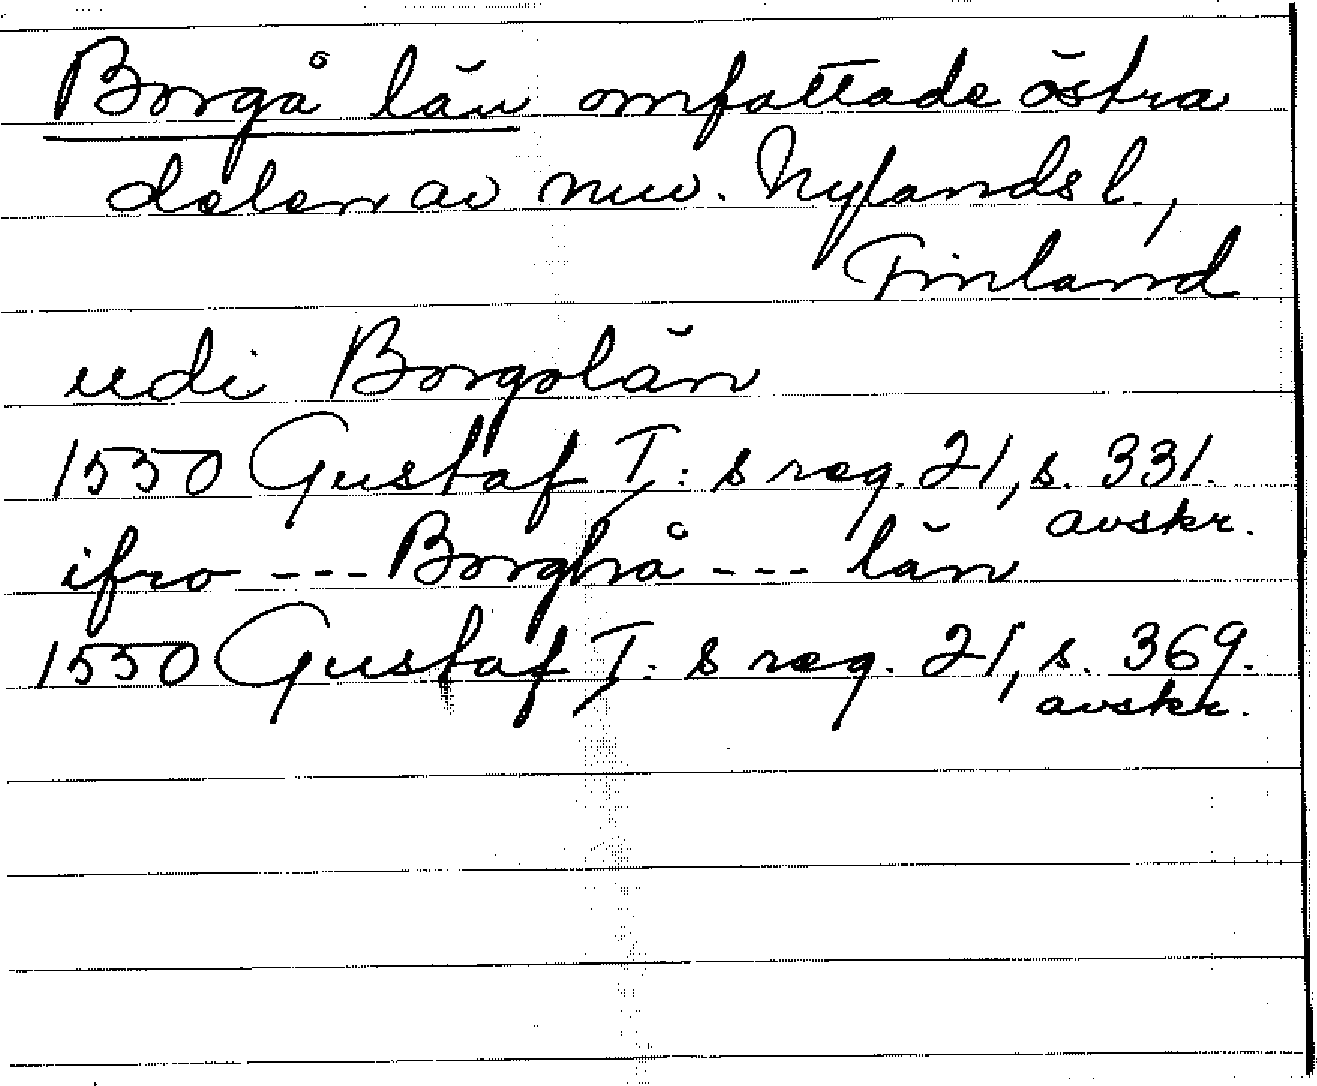 Borgå län omfattade östra
delen av nuv. Nylands l.,
Finland
udi Borgolän
1550 Gustaf I:s reg. 21, s. 331.
avskr.
ifro --- Borghå --- län
1550 Gustaf I:s reg. 21, s. 369.
avskr.